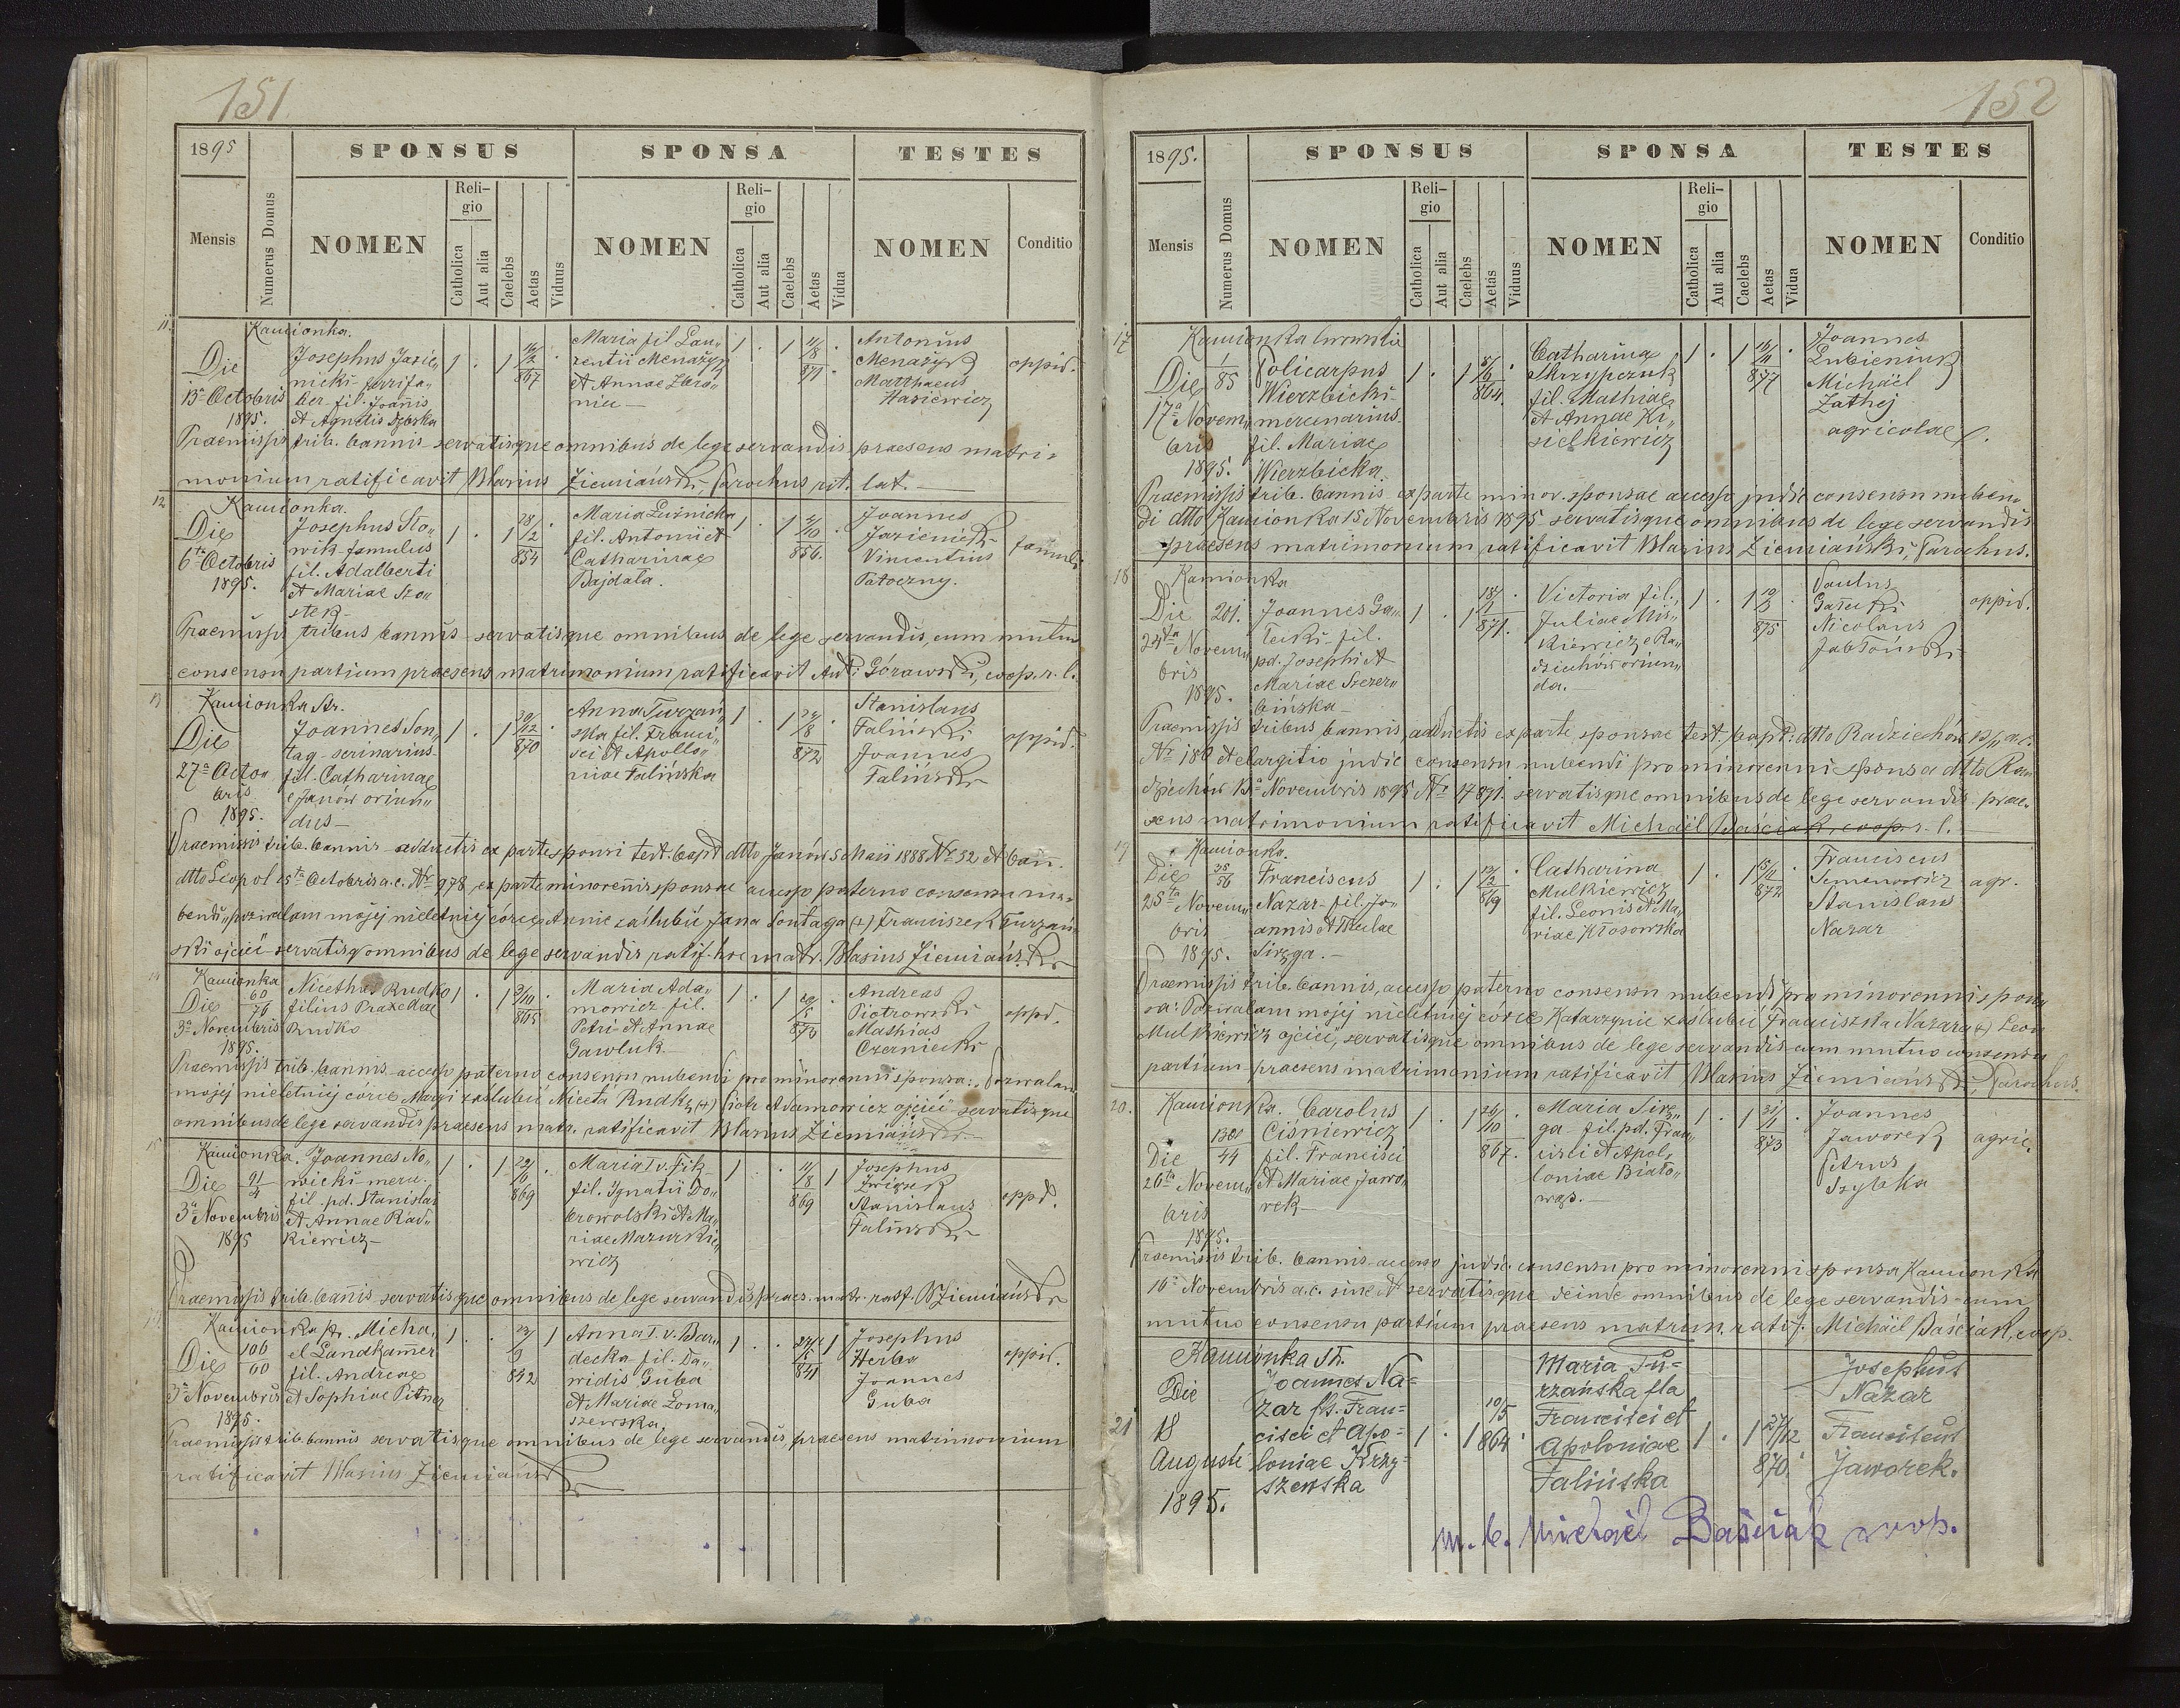 151
1895
SPONSUS
SPONSA
TESTES
Mensis
Numerus Domus
NOMEN
Reli-
gio
Catholica
Aut alia
Caelebs
Aetas
Viduus
NOMEN
Reli-
gio
Catholica
Aut alia
Caelebs
Aetas
Vidua
NOMEN
Conditio
11.
Kamionka.
Die 13a Octobris 1895.
Josephus Jazie„
nicki
fil. Joannis
et Agnetis
1 . 1 16/2 867 .
Maria fil Lau„
rentii Menažyk
et Annae
1 . 1 11/8 871 .
Antonius
Menažyk
Matthaeus
Hasiewicz
oppid.
Praemissis trib. bannis servatisque omnibus de lege servandis praesens matri„
monium ratificavit Blasius Ziemiański Parochus rit. lat.
12
Kamionka.
Die 6ta Octobris 1895.
Josephus Sto„
wik famulus
fil. Adalberti
et Mariae Szo„
stek
1 . 1 28/2 854
Maria Luśnicka
fil. Antonii et
Catharinae
Bajdala.
1 . 1 2/10 856.
Joannes
Jazienicki
Vincentius
Potoczny.
famuli
Praemissis tribus bannis servatisque omnibus de lege servandis, cum mutuo
consensu partium praesens matrimonium ratificavit And. Górawski, coop. r. l.
13
Kamionka Str.
Die 27a Octo„
bris 1895.
Joannes Son„
tag
fil. Catharinae
e Janów oriun„
dus
1 . 1 30/12 870
Anna Turzań„
ska fil. Franci„
sci et Apollo„
niae Falińska
1 . 1 24/8 872
Stanislaus
Faliński
Joannes
Faliński
oppid.
Praemissis trib. bannis adductis ex parte sponsi test. bapt. dtto Janów 5 Maii 1888 Nr 52 et ban.
dtto Leopol 15ta Octobris a.c. Nr 978, ex parte minorennis sponsae accesso paterno consensu nu„
bendi „pozwalam mojej nieletniej córce Annie zaślubić Jana Sontaga (+) Franciszek Turzań„
ski ojciec" servatisq omnibus de lege servandis ratif. hoc matr. Blasius Ziemiański
14
Kamionka
Die 60/76
3a Novembris 1895.
Nicethas Rudko
filius Praxedae
Rudko
1 . 1 3/10 845
Maria Ada„
mowicz fil.
Petri et Annae
Gawluk.
1 . 1 29/5 873
Andreas
Piotrowski
Mathias
Czerniecki
oppd.
Praemissis trib. bannis accesso paterno consensu nubendi pro minorenni sponsa: „Pozwalam
mojej nieletniej córce Maryi zaślubić Niceta Rudkę (+) Piotr Adamowicz ojciec" servatisque
omnibus de lege servandis praesens matr. ratificavit Blasius Ziemiański
15
Kamionka.
Die 91/4
3a Novembris 1895
Joannes No„
wicki merc.
fil. pd. Stanislai
et Annae Rad„
kiewicz
1 . 1 22/6 869
Maria I v. Fik
fil. Ignatii Do„
browolski et Ma„
riae Mazurkie„
wicz
1 . . 11/8 869 1
Josephus
Stanislaus
Faliński
oppd.
Praemissis trib. bannis servatisque omnibus de lege servandis praes. matr. ratif. B Ziemiański
Kamionka str.
Die 106/60
3a Novembris 1895.
Micha„
el Landkamer
fil. Andreae
et Sophiae Pitner
1 . . 22/9 842 1
Anna I. v. Bar„
decka fil. Da„
widis Guba
et Mariae Loma„
szewska.
1 . . 841 1
Josephus
Herba
Joannes
Guba
oppid.
Praemissis trib. bannis servatisque omnibus de lege servandis, praesens matrimonium
ratificavit Blasius Ziemiański
152
1895.
SPONSUS
SPONSA
TESTES
Mensis
Numerus Domus
NOMEN
Reli-
gio
Catholica
Aut alia
Caelebs
Aetas
Viduus
NOMEN
Reli-
gio
Catholica
Aut alia
Caelebs
Aetas
Vidua
NOMEN
Conditio
17
Kamionka
Die 1/85
17a Novem„
bris 1895.
Policarpus
Wierzbicki
mercenarius
fil. Mariae
Wierzbicka.
1 . 1 8/6 864.
Catharina
Skrzypczuk
fil. Mathiae
et Annae Ki„
sielkiewicz
1 . 1 16/11 877
Joannes
Lubieniuk
Michäel
Zathej
agricolae
Praemissis trib. bannis ex parte minor. sponsae accesso judic consensu nuben„
di dtto Kamionka 15 Novembris 1895 servatisque omnibus de lege servandis
praesens matrimonium ratificavit Blasius Ziemiański, Parochus.
18
Kamionka
Die 201.
24ta Novem„
bris 1895.
Joannes Ga„
fil.
pd. Josephi et
Mariae Szczer„
bińska
1 . 1 18/1 871.
Victoria fil.
Juliae Mis„
kiewicz e Ra„
dziechów oriun„
da.
1 . 1 875
Paulus
Nicolaus
Jabłoński
oppid.
Praemissis tribus bannis, adductis ex parte sponsae test. bapt: dtto Radziechów a.c.
Nr 180 et elargitio judic consensu nubendi pro minorenni sponsa dtto Ra„
dziechów 13a Novembris 1895 Nr 17891. servatisque omnibus de lege servandis prae„
sens matrimonium ratificavit Michäel Baściak, coop. r. l.
19
Kamionka.
Die 35/56
25ta Novem„
bris 1895.
Franciscus
Nazar fil. Jo„
annis et Theclae
Sirzga.
1 . 1 12/2 869
Catharina
Mulkiewicz
fil. Leonis et Ma„
riae Kłosowska
1 . 1 15/11 872
Franciscus
Stanislaus
Nazar
agr.
Praemissis trib. bannis, accesso paterno consensu nubendi pro minorenni spon„
sa: Pozwalam mojej nieletniej córce Katarzynie zaślubić Franciszka Nazara (+) Leon
Mulkiewicz ojciec", servatisque omnibus de lege servandis cum mutuo consensu
partium praesens matrimonium ratificavit Blasius Ziemiański, Parochus.
20.
Kamionka.
Die 44
26ta Novem„
bris 1895.
Carolus
Ciśniewicz
fil. Francisci
et Mariae Jawo„
rek
1 . 1 26/10 867.
Maria Sirz„
ga fil. pd. Fran„
cisci et Apol„
loniae Biało„
wąs.
1 . 1 31/1 873
Joannes
Jaworek
Petrus
Szybka
agric.
Praemissis trib. bannis accesso judic. consensu pro minorenni sponsa Kamionka
16a Novembris a.c. sine Nr servatisque deinde omnibus de lege servandis cum
mutuo consensu partium praesens matrim. ratif. Michäel Baściak, coop.
21
Kamionka st.
Die
18
Augusti
1895.
Joannes Na=
zar fs. Fran=
cisci et Apo=
loniae Krzy=
szewska
1 . 1 10/5 864
Maria Tu=
rzańska fla
Francisci et
Apoloniae
Falińska
1 . 1 27/12 870
Josephus
Nazar
Franciscus
Jaworek.
m. b. Michael Baściak coop.